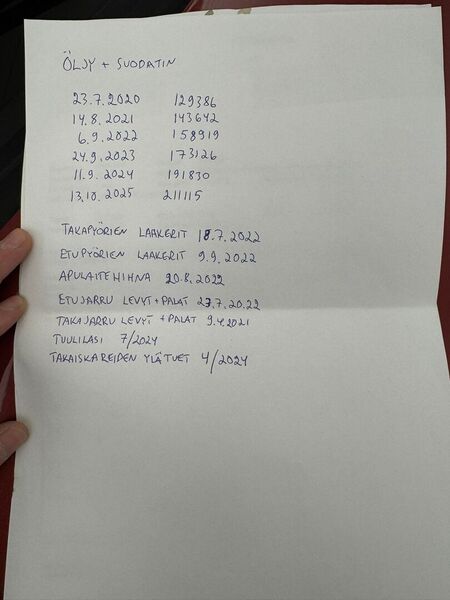 ÖLJY + SUODATIN
23.7.2020 129386
14.8.2021 143642
6.9.2022 158919
24.9.2023 173126
11.9.2024 191830
13.10.2025 211115
TAKAPYÖRIEN LAAKERIT 18.7.2022
ETUPYÖRIEN LAAKERIT 9.9.2022
APULAITEHIHNA 20.8.2022
ETUJARRU LEVYT + PALAT 27.7.2022
TAKAJARRU LEVYT + PALAT 9.4.2021
TUULILASI 7/2024
TAKAISKAREIDEN YLÄTUET 4/2024